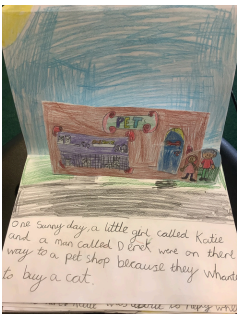 PET
One sunny day, a little girl called Katie
and a man called Derek were on there
way to a pet shop because they whanted
to buy a cat.